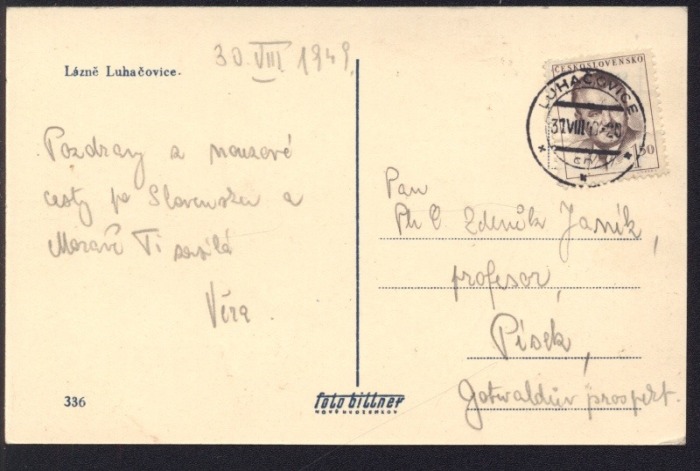 Lázně Luhačovice.
30. VIII. 1949.
Pozdravy z
cesty po Slovensku a
Moravě Ti posílá
Věra
336
foto bittner
ČESKOSLOVENSKO
LUHAČOVICE
31 VIII 49-20
1,50
Pan
Ph C. Zdeněk Janík,
profesor,
Písek,
Gotwaldův prospekt.